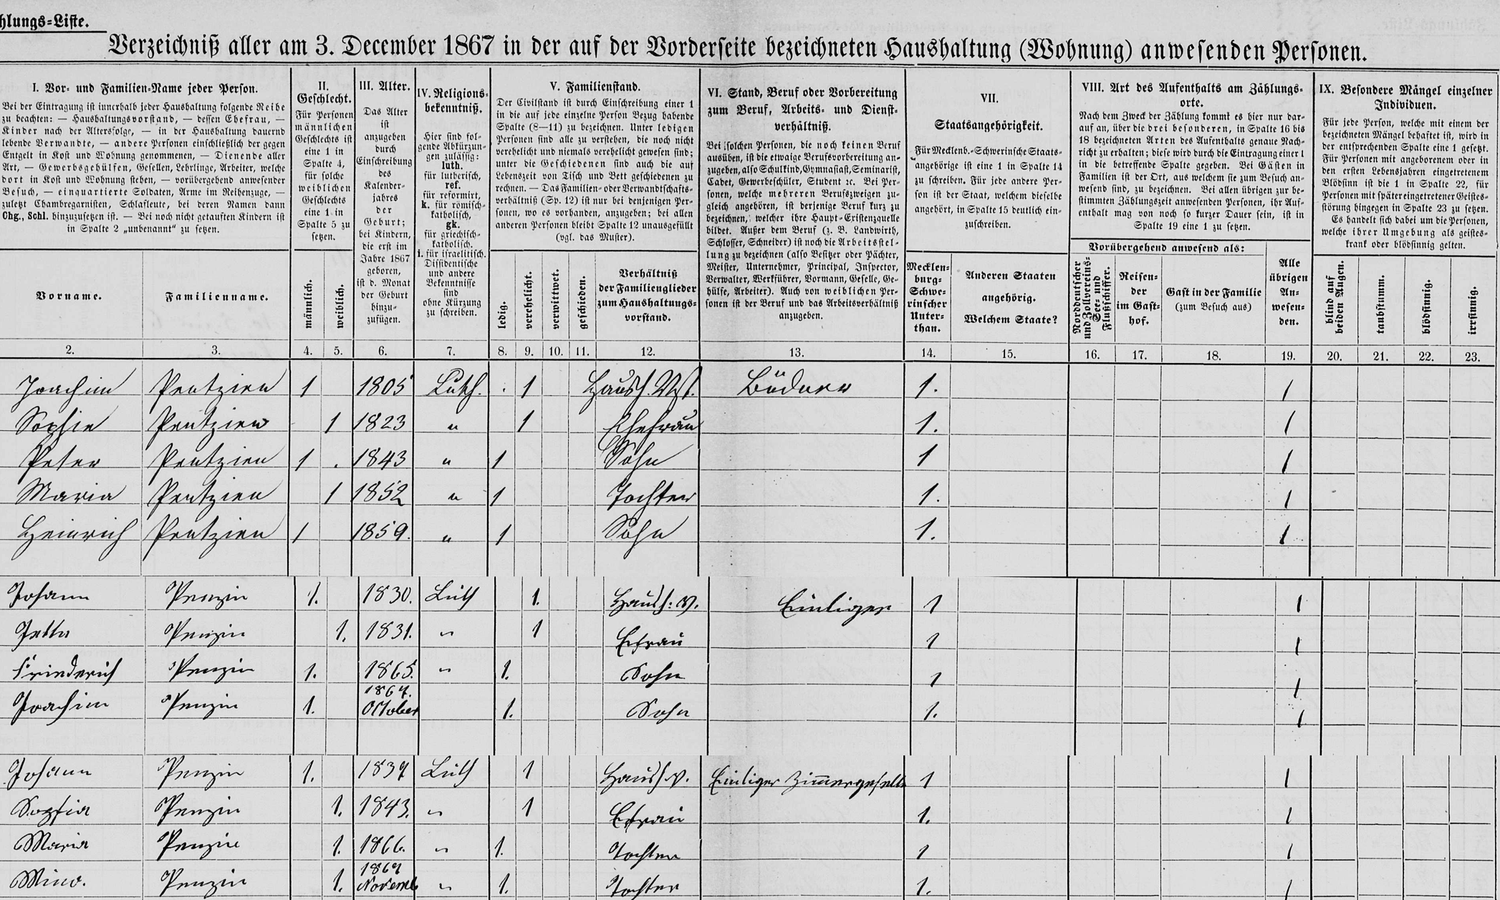 hlungs-Liste.
Verzeichniß aller am 3. December 1867 in der auf der Vorderseite bezeichneten Haushaltung (Wohnung) anwesenden Personen.
I. Vor- und Familien-Name jeder Person.
Bei der Eintragung ist innerhalb jeder Haushaltung folgende Reihe
zu beachten: — Haushaltungsvorstand, — dessen Ehefrau, —
Kinder nach der Altersfolge, — in der Haushaltung dauernd
lebende Verwandte, — andere Personen einschließlich der gegen
Entgelt in Kost und Wohnung genommenen, — Dienende aller
Art, — Gewerbsgehülfen, Gesellen, Lehrlinge, Arbeiter, welche
dort in Kost und Wohnung stehen, — vorübergehend anwesender
Besuch, — einquartierte Soldaten, Arme im Reihenzuge, —
zuletzt Chambregarnisten, Schlafleute, bei deren Namen dann
Chg., Schl. hinzuzusetzen ist. — Bei noch nicht getauften Kindern ist
in Spalte 2 „unbenannt“ zu setzen.
Vorname.
Familienname.
II.
Geschlecht.
Für Personen
männlichen
Geschlechts ist
eine 1 in
Spalte 4,
für solche
weiblichen
Geschlechts
eine 1 in
Spalte 5 zu
setzen.
männlich.
weiblich.
III. Alter.
Das Alter
ist
anzugeben
durch
Einschreibung
des
Kalender-
jahres
der
Geburt;
bei Kindern,
die erst im
Jahre 1867
geboren,
ist d. Monat
der Geburt
hinzu-
zufügen.
IV. Religions-
bekenntniß.
Hier sind fol-
gende Abkürzun-
gen zulässig:
luth.
für lutherisch,
ref.
für reformirt,
k. für römisch-
katholisch,
gk.
für griechisch-
katholisch.
i. für israelitisch.
Dissidentische
und andere
Bekenntnisse
sind
ohne Kürzung
zu schreiben.
V. Familienstand.
Der Civilstand ist durch Einschreibung einer 1
in die auf jede einzelne Person Bezug habende
Spalte (8—11) zu bezeichnen. Unter ledigen
Personen sind alle zu verstehen, die noch nicht
verehelicht und niemals verehelicht gewesen sind;
unter die Geschiedenen sind auch die auf
Lebenszeit von Tisch und Bett geschiedenen zu
rechnen. — Das Familien- oder Verwandtschafts-
verhältniß (Sp. 12) ist nur bei denjenigen Per-
sonen, wo es vorhanden, anzugeben; bei allen
anderen Personen bleibt Spalte 12 unausgefüllt
(vgl. das Muster).
ledig.
verehelicht.
verwittwet.
geschieden.
Verhältniß
der Familienglieder
zum Haushaltungs-
vorstand.
VI. Stand, Beruf oder Vorbereitung
zum Beruf, Arbeits- und Dienst-
verhältniß.
Bei solchen Personen, die noch keinen Beruf
ausüben, ist die etwaige Berufsvorbereitung an-
zugeben, also Schulkind, Gymnasiast, Seminarist,
Cadet, Gewerbeschüler, Student ꝛc. Bei Per-
sonen, welche mehreren Berufszweigen an-
gehören, ist derjenige Beruf kurz zu
bezeichnen, welcher ihre Haupt-Existenzquelle
bildet. Außer dem Beruf (z. B. Landwirth,
Schlosser, Schneider) ist noch die Arbeitsstel-
lung zu bezeichnen (also Besitzer oder Pächter,
Meister, Unternehmer, Principal, Inspector,
Verwalter, Werkführer, Vormann, Geselle, Ge-
hülfe, Arbeiter). Auch von weiblichen Per-
sonen ist der Beruf und das Arbeitsverhältniß
anzugeben.
VII.
Staatsangehörigkeit.
Für Mecklenb.-Schwerinsche Staats-
angehörige ist eine 1 in Spalte 14
zu schreiben. Für jede andere Per-
son ist der Staat, welchem dieselbe
angehört, in Spalte 15 deutlich ein-
zuschreiben.
Mecklen-
burg-
Schwe-
rinscher
Unter-
than.
Anderen Staaten
angehörig.
Welchem Staate?
VIII. Art des Aufenthalts am Zählungs-
orte.
Nach dem Zweck der Zählung kommt es hier nur dar-
auf an, über die drei besonderen, in Spalte 16 bis
18 bezeichneten Arten des Aufenthalts genaue Nach-
richt zu erhalten; diese wird durch die Eintragung einer 1
in die betreffende Spalte gegeben. Bei Gästen in
Familien ist der Ort, aus welchem sie zum Besuch an-
wesend sind, zu bezeichnen. Bei allen übrigen zur be-
stimmten Zählungszeit anwesenden Personen, ihr Auf-
enthalt mag von noch so kurzer Dauer sein, ist in
Spalte 19 eine 1 zu setzen.
Vorübergehend anwesend als:
Norddeutscher
und Zollvereins-
See- und
Flußschiffer.
Reisen-
der
im Gast-
hof.
Gast in der Familie
(zum Besuch aus)
Alle
übrigen
An-
wesen-
den.
IX. Besondere Mängel einzelner
Individuen.
Für jede Person, welche mit einem der
bezeichneten Mängel behaftet ist, wird in
der entsprechenden Spalte eine 1 gesetzt.
Für Personen mit angeborenem oder in
den ersten Lebensjahren eingetretenem
Blödsinn ist die 1 in Spalte 22, für
Personen mit später eingetretener Geistes-
störung hingegen in Spalte 23 zu setzen.
Es handelt sich dabei um die Personen,
welche ihrer Umgebung als geistes-
krank oder blödsinnig gelten.
blind auf
beiden Augen.
taubstumm.
blödsinnig.
irrsinnig.
2. 3. 4. 5. 6. 7. 8. 9. 10. 11. 12. 13. 14. 15. 16. 17. 18. 19. 20. 21. 22. 23.
Joachim Pentzien 1 1805 Luth. 1 Haush. Vst. Büdner 1. 1
Sophie Pentzien 1 1823 " 1 Ehefrau 1. 1
Peter Pentzien 1 1843 " 1 Sohn 1 1
Maria Pentzien 1 1852 " 1 Tochter 1. 1
Heinrich Pentzien 1 1859. " 1 Sohn 1. 1
Johann Penzin 1. 1830. Luth 1. Haush. v. Einlieger 1 1
Jetta Penzin 1. 1831. " 1 Efrau 1 1
Friederich Penzin 1. 1865. " 1. Sohn 1 1
Joachim Penzin 1. 1867. October 1. Sohn 1. 1
Johann Penzin 1. 1837 Luth 1 Haush. v. Einlieger Zimmergeselle 1 1
Sophia Penzin 1. 1843. " 1 Efrau 1. 1
Maria Penzin 1. 1866. " 1. Tochter 1 1
Mina. Penzin 1. 1867 Novemb " 1. Tochter 1. 1